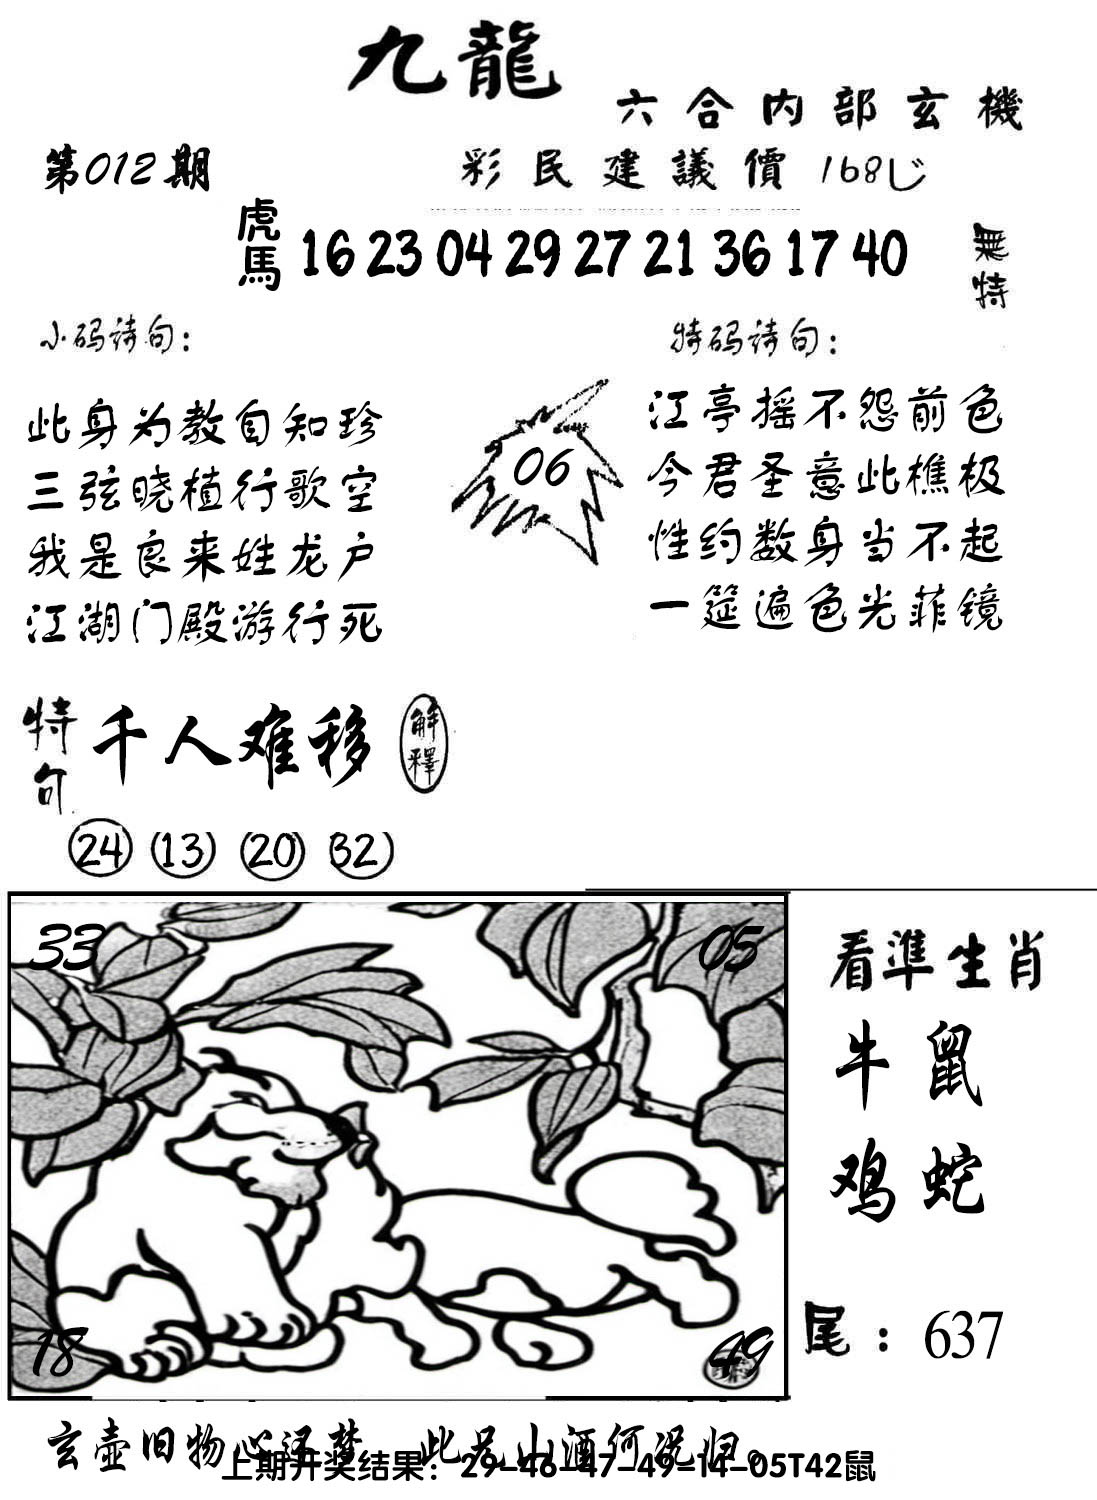 九龍
六合内部玄機
第012期
彩民建議價 168
虎馬 16 23 04 29 27 21 36 17 40
無特
小码诗句：
此身为教自知珍
三弦晓植行歌空
我是良来姓龙户
江湖门殿游行死
06
特码诗句：
江亭摇不怨前色
今君圣意此樵极
性约数身当不起
一筵遍色光菲镜
特句 千人难移 解釋
24 13 20 32
33
05
18
49
看準生肖
牛鼠
鸡蛇
尾：637
玄壶旧物心 此 山酒何况归。
上期开奖结果：29-46-47-49-14-05T42鼠